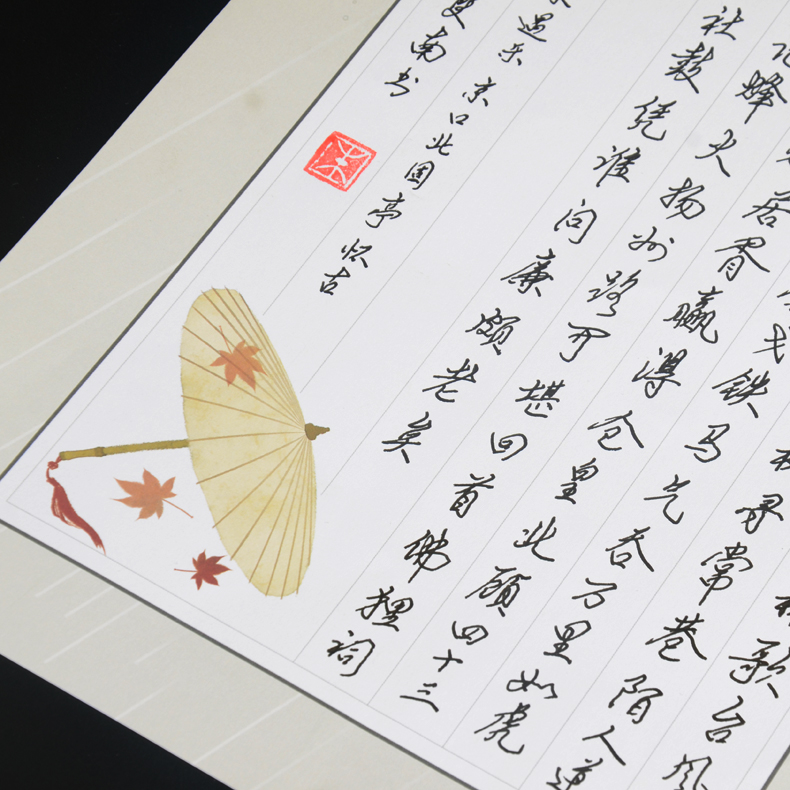 歌台风
寻常巷陌人道
戈铁马气吞万里如虎
居胥赢得仓皇北顾四十三
烽火扬州路可堪回首佛狸祠
社鼓凭谁问廉颇老矣
遇乐 京口北固亭怀古
南书